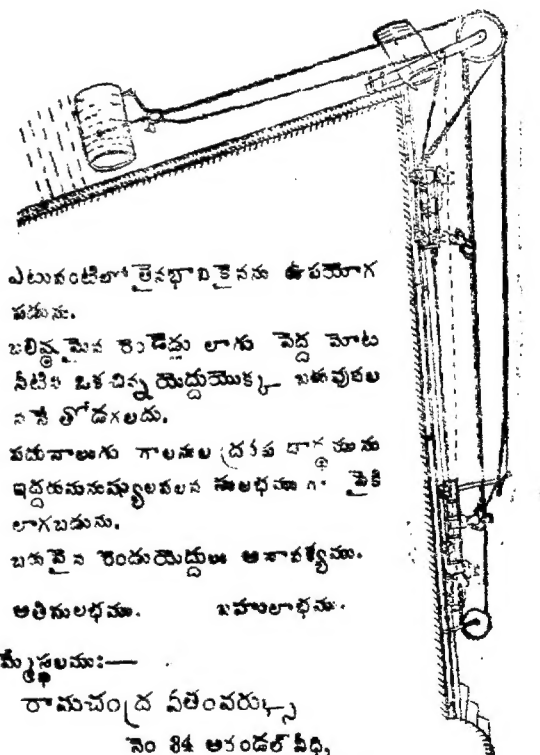 ఎటువంటిలోతైనభావికైనను ఉపయోగ
పడును.
బలిష్ఠమైన రెండెద్దు లాగు పెద్ద మోట
నీటిని ఒకచిన్న యెద్దుయొక్క బళువువల
ననే తోడగలదు.
పదునాలుగు గాలనుల ద్రవప దార్థమును
ఇద్దరుమనుష్యులవలన సులభముగా పైకి
లాగబడును.
బరువైన రెండుయెద్దులు అనావశ్యము.
అతిసులభము. బహులాభము.
స్థలము:—
రామచంద్ర వర్క్సు
నెం 84 వీధి,